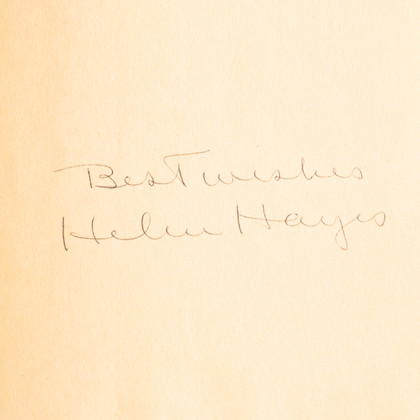 Best wishes
Helen Hayes